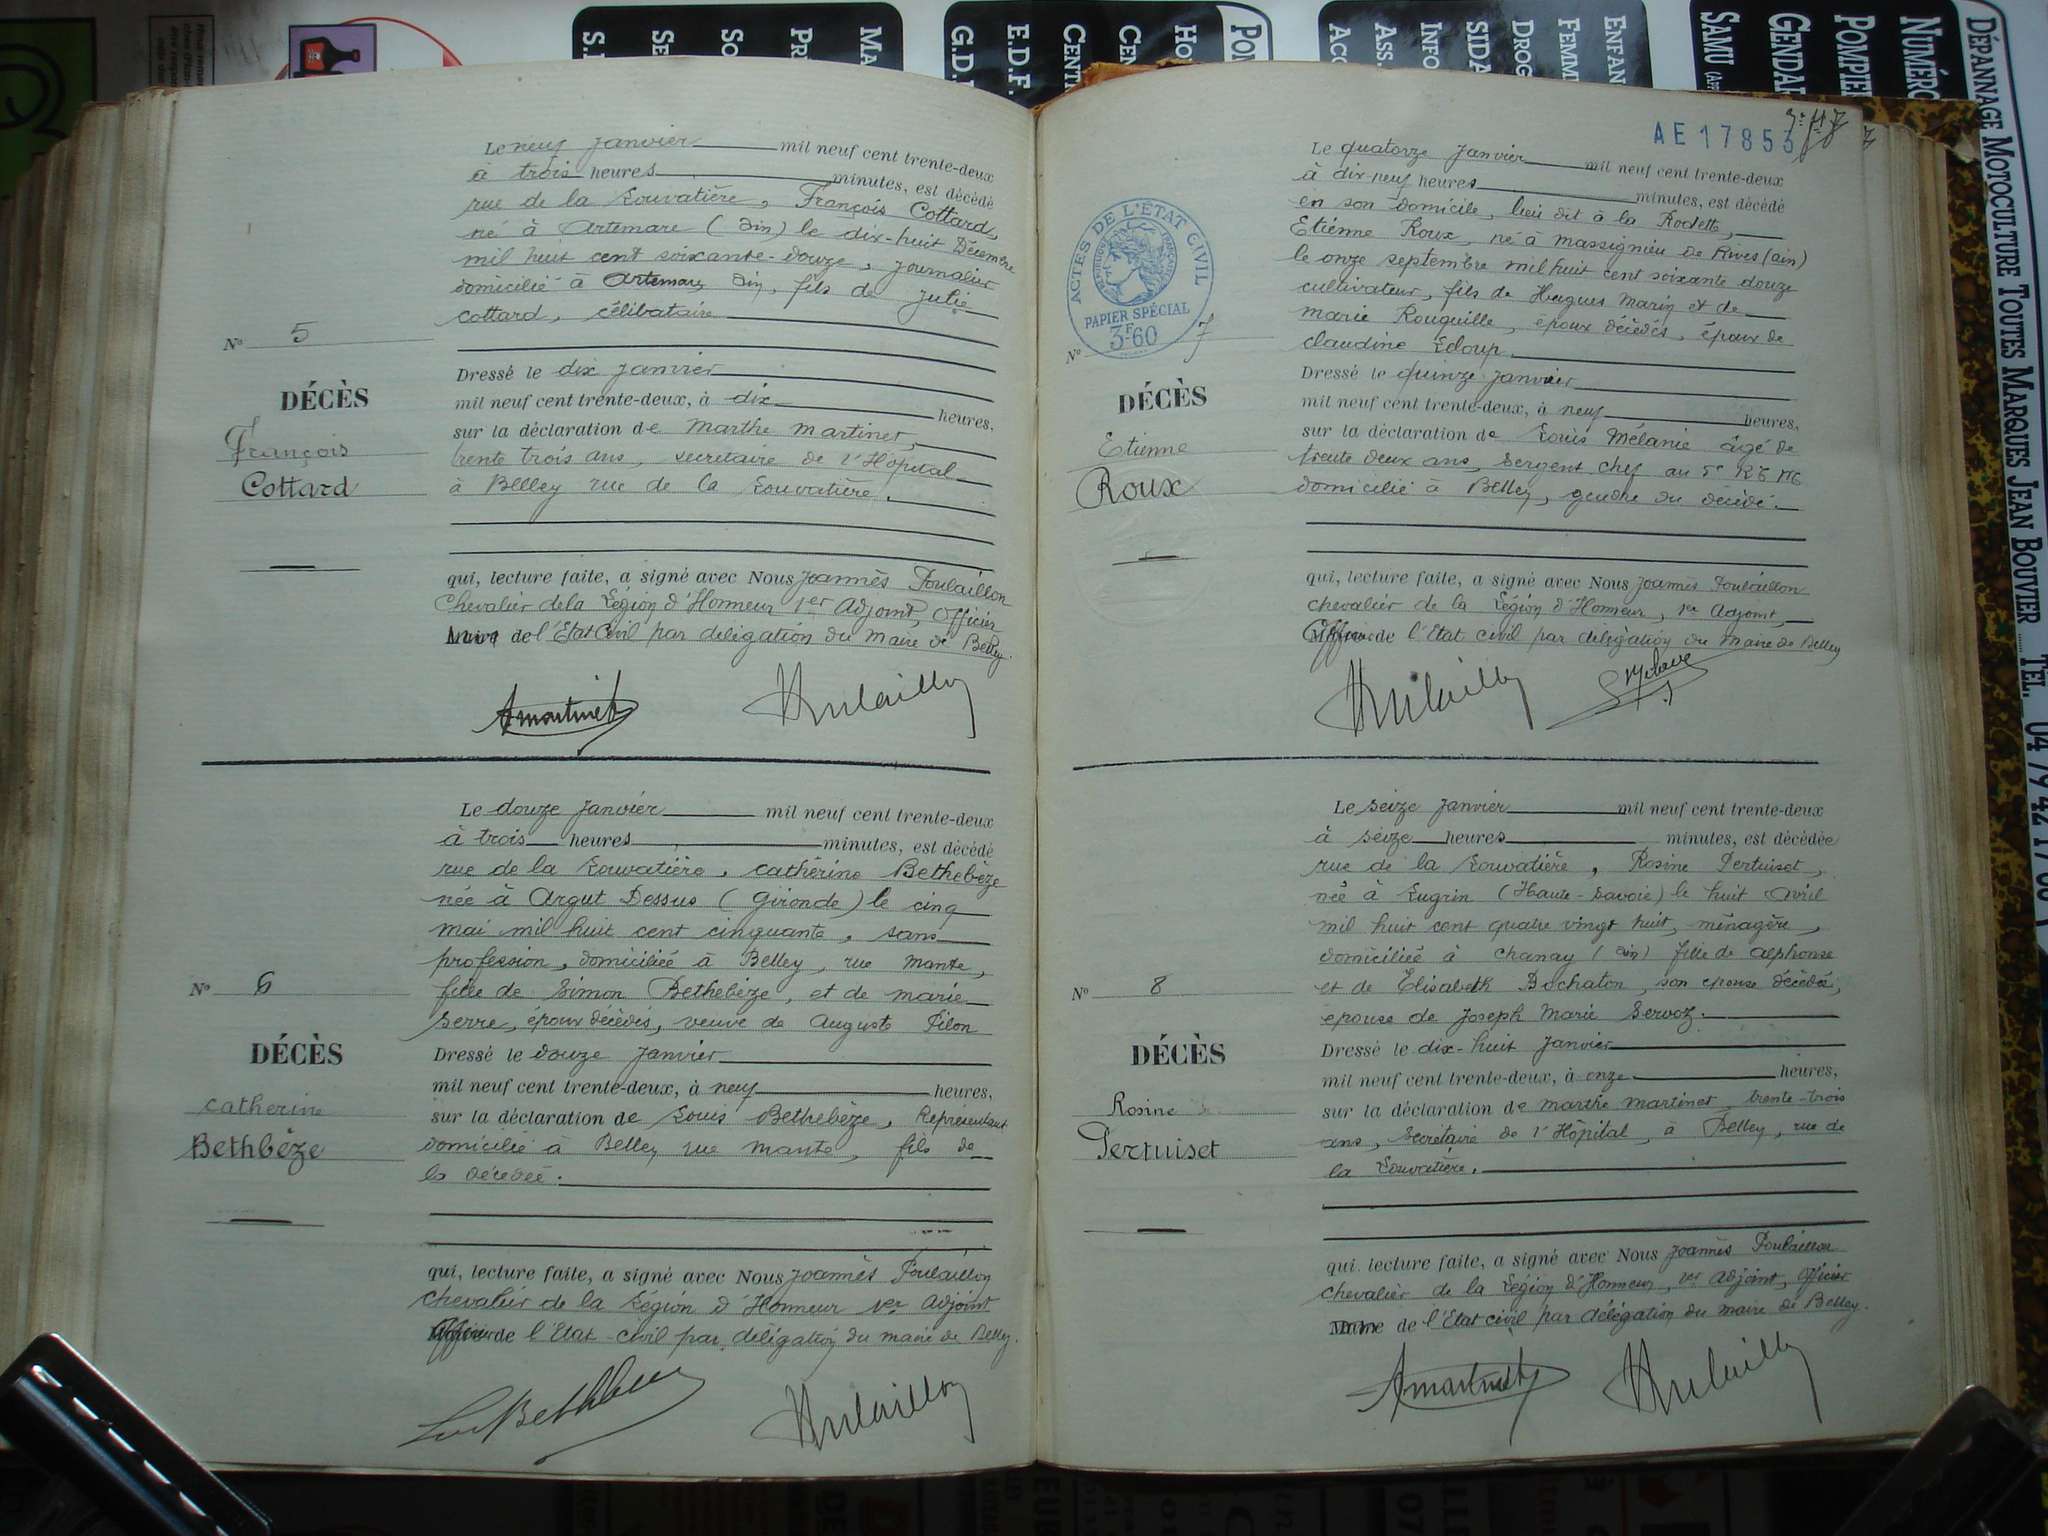 Le neuf janvier mil neuf cent trente-deux
à trois heures minutes, est décédé
rue de la Louvatière, François Cottard,
né à Artemare (Ain) le dix-huit Décembre
mil huit cent soixante-douze, journalier
domicilié à Artemare Ain, fils de Julie
Cottard, célibataire
N° 5
DÉCÈS
François
Cottard
Dressé le dix janvier
mil neuf cent trente-deux, à dix heures,
sur la déclaration de Marthe Martinet,
trente trois ans, secrétaire de l'Hôpital
à Belley rue de la Louvatière.
qui, lecture faite, a signé avec Nous Joannès Poulaillon
Chevalier de la Légion d'Honneur 1er Adjoint, Officier
de l'Etat Civil par délégation du Maire de Belley.
Le douze janvier mil neuf cent trente-deux
à trois heures minutes, est décédé
rue de la Louvatière, Cathérine Bethebèze
née à Argut Dessus (Gironde) le cinq
mai mil huit cent cinquante, sans
profession, domiciliée à Belley, rue Mante,
fille de Simon Bethebèze, et de Marie
Serre, époux décédés, veuve de Auguste Pilon
N° 6
DÉCÈS
Catherine
Bethbèze
Dressé le douze janvier
mil neuf cent trente-deux, à neuf heures,
sur la déclaration de Louis Bethebèze, Représentant
domicilié à Belley rue Mante, fils de
la décédée.
qui, lecture faite, a signé avec Nous Joannès Poulaillon
Chevalier de la Légion d'Honneur 1er Adjoint
Officier de l'Etat-civil par délégation du maire de Belley.
AE 17853
7
Le quatorze janvier mil neuf cent trente-deux
à dix-neuf heures minutes, est décédé
en son domicile, lieu dit à la Rodette,
Etiénne Roux, né à Massignieu de Rives (Ain)
le onze septembre mil huit cent soixante douze
cultivateur, fils de Hugues Marin et de
Marie Rouguille, époux décédés, époux de
Claudine Eloup.
ACTES DE L'ÉTAT CIVIL
RÉPUBLIQUE FRANÇAISE
PAPIER SPÉCIAL
3F60
N° 7
DÉCÈS
Etienne
Roux
Dressé le quinze janvier
mil neuf cent trente-deux, à neuf heures,
sur la déclaration de Louis Mélanie âgé de
trente deux ans, Sergent chef au 5e
domicilié à Belley, gendre du décédé.
qui, lecture faite, a signé avec Nous Joannès Poulaillon
chevalier de la Légion d'Honneur, 1er Adjoint,
Officier de l'Etat civil par délégation du Maire de Belley
Le seize janvier mil neuf cent trente-deux
à seize heures minutes, est décédée
rue de la Louvatière, Rosine Pertuiset,
née à Lugrin (Haute-Savoie) le huit Avril
mil huit cent quatre vingt huit, ménagère,
domiciliée à Chanay (Ain) fille de Alphonse
et de Elisabeth Bochaton, son epouse décédés,
epouse de Joseph Marie Servoz.
N° 8
DÉCÈS
Rosine
Pertuiset
Dressé le dix-huit janvier
mil neuf cent trente-deux, à onze heures,
sur la déclaration de Marthe Martinet, trente-trois
ans, Secrétaire de l'Hôpital, à Belley, rue de
la Louvatière.
qui, lecture faite, a signé avec Nous Joannès Poulaillon
chevalier de la Légion d'Honneur, 1er Adjoint, Officier
de l'Etat civil par délégation du maire de Belley.
DÉPANNAGE MOTOCULTURE TOUTES MARQUES JEAN BOUVIER
TÉL. 04 79 42 17 06
NUMÉRO
POMPIE
GENDA
SAMU
ENFAN
FEMM
DROG
SIDA
INFO
ASS.
ACC
POM
HO
CE
CENT
E.D.F.
G.D.
MA
PR
SO
SE
S.